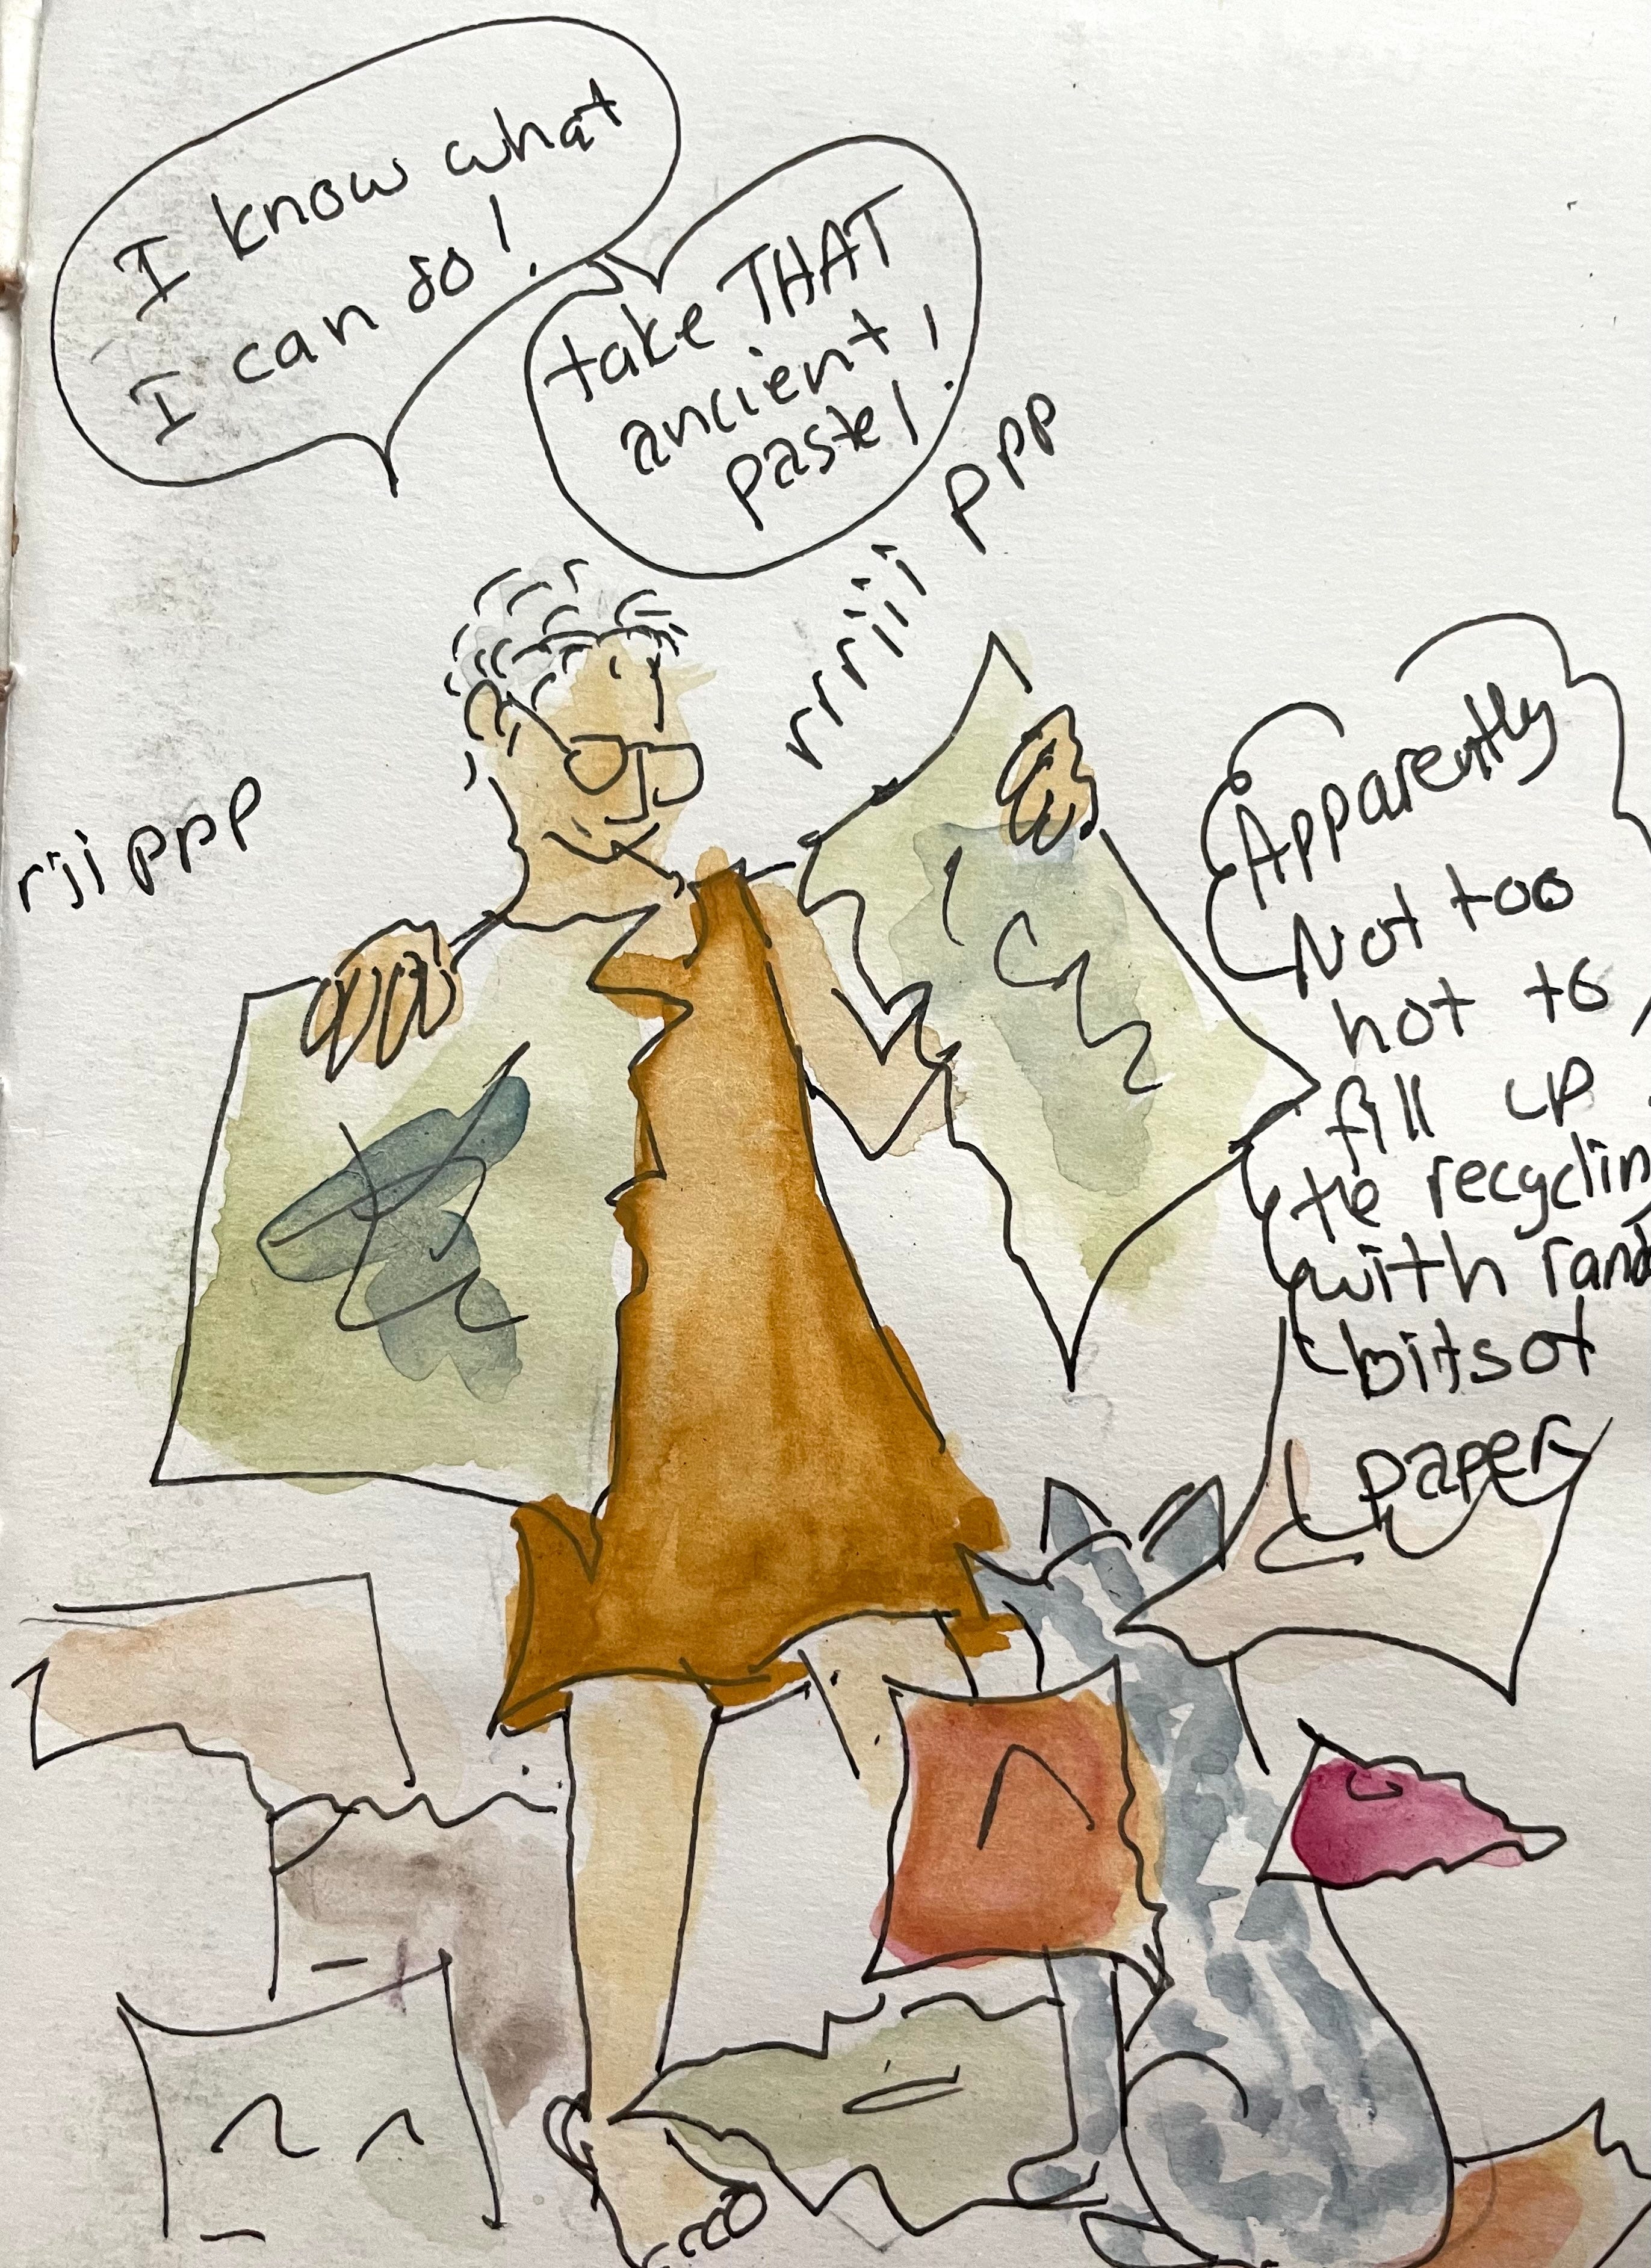 I know what
I can do!
take THAT
ancient!
pastel
rrriiippp
riippp
Apparently
Not too
hot to
fill up
the recyclin
with rand
bits of
paper